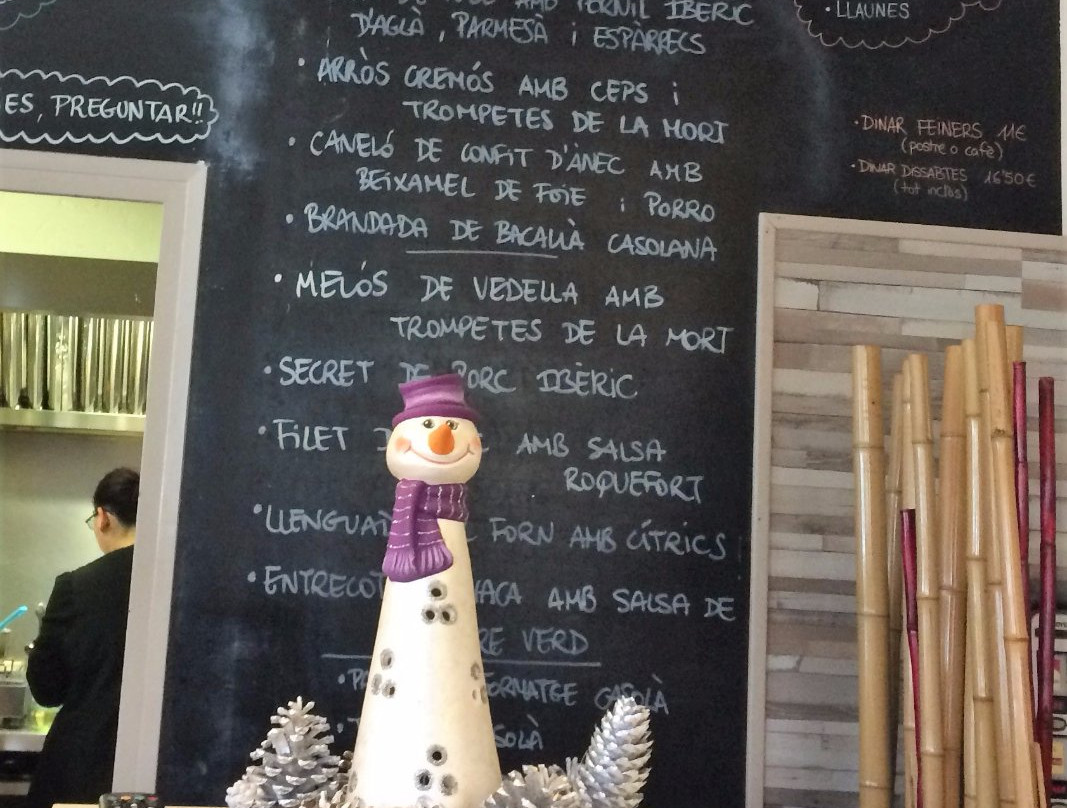 AMB PERNIL IBÈRIC
D'AGLÀ, PARMESÀ i ESPÀRRECS
• ARRÒS CREMÓS AMB CEPS i
TROMPETES DE LA MORT
• CANELÓ DE CONFIT D'ÀNEC AMB
BEIXAMEL DE FOIE i PORRO
• BRANDADA DE BACALLÀ CASOLANA
• MELÓS DE VEDELLA AMB
TROMPETES DE LA MORT
• SECRET DE PORC IBÈRIC
• FILET AMB SALSA
ROQUEFORT
• FORN AMB CÍTRICS
• AMB SALSA DE
VERD
ES, PREGUNTAR!!
• LLAUNES
• DINAR FEINERS 11€
(postre o cafè)
• DINAR DISSABTES 16'50€
(tot inclòs)